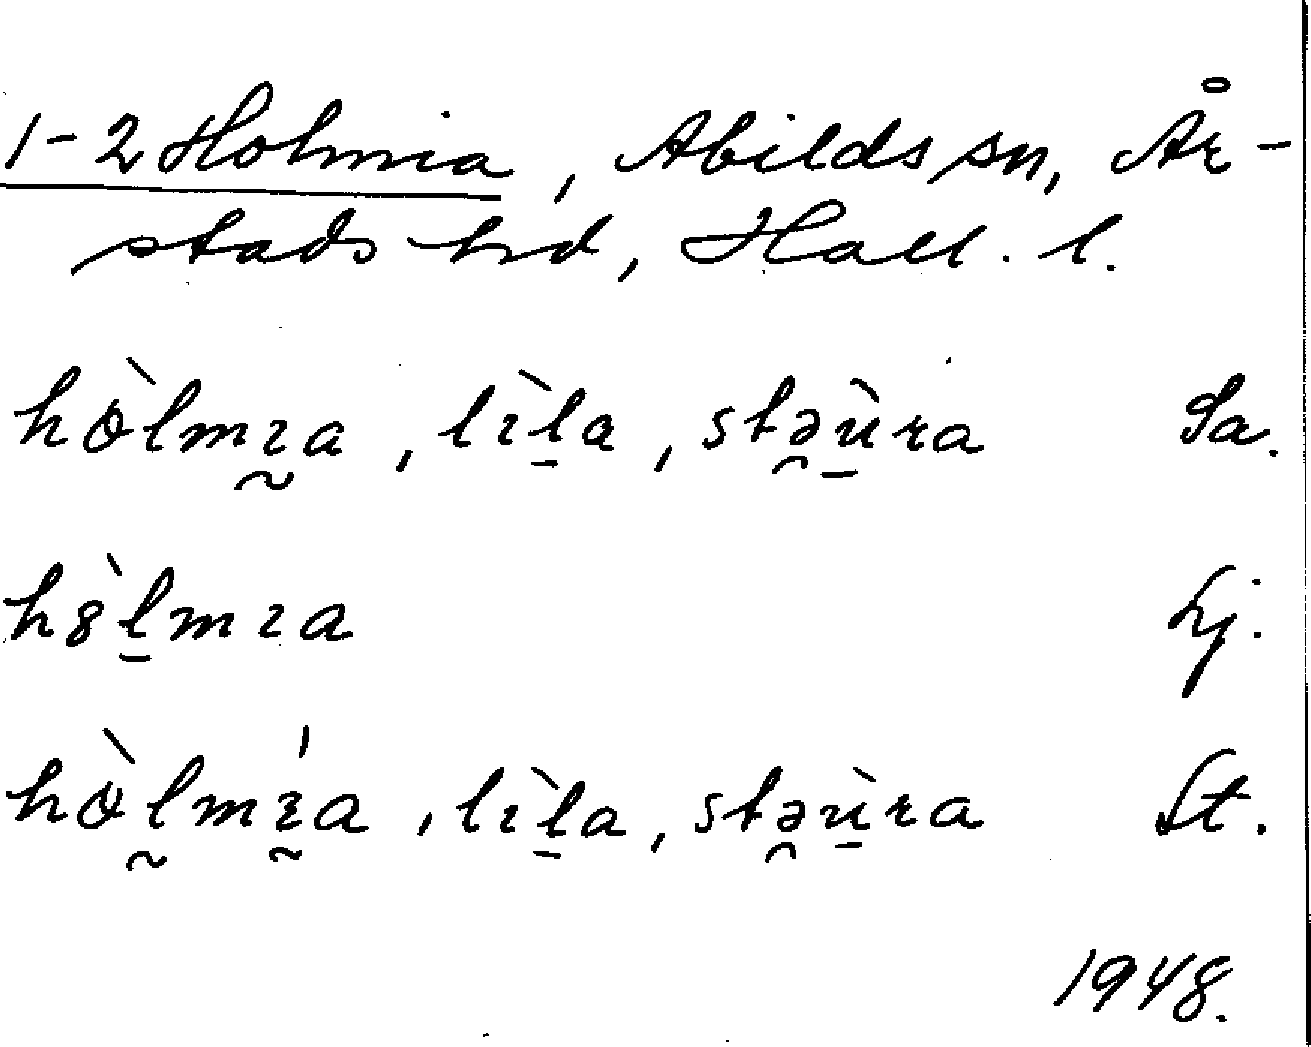 1-2 Holmia, Abilds sn, År-
stads hd, Hall. l.
hòlmɿa, lɿ̀la, stəùra Sa.
hȣ̀lmɿa Lj.
hòlmɿ́a, lɿ̀la, stəùra St.
1948.